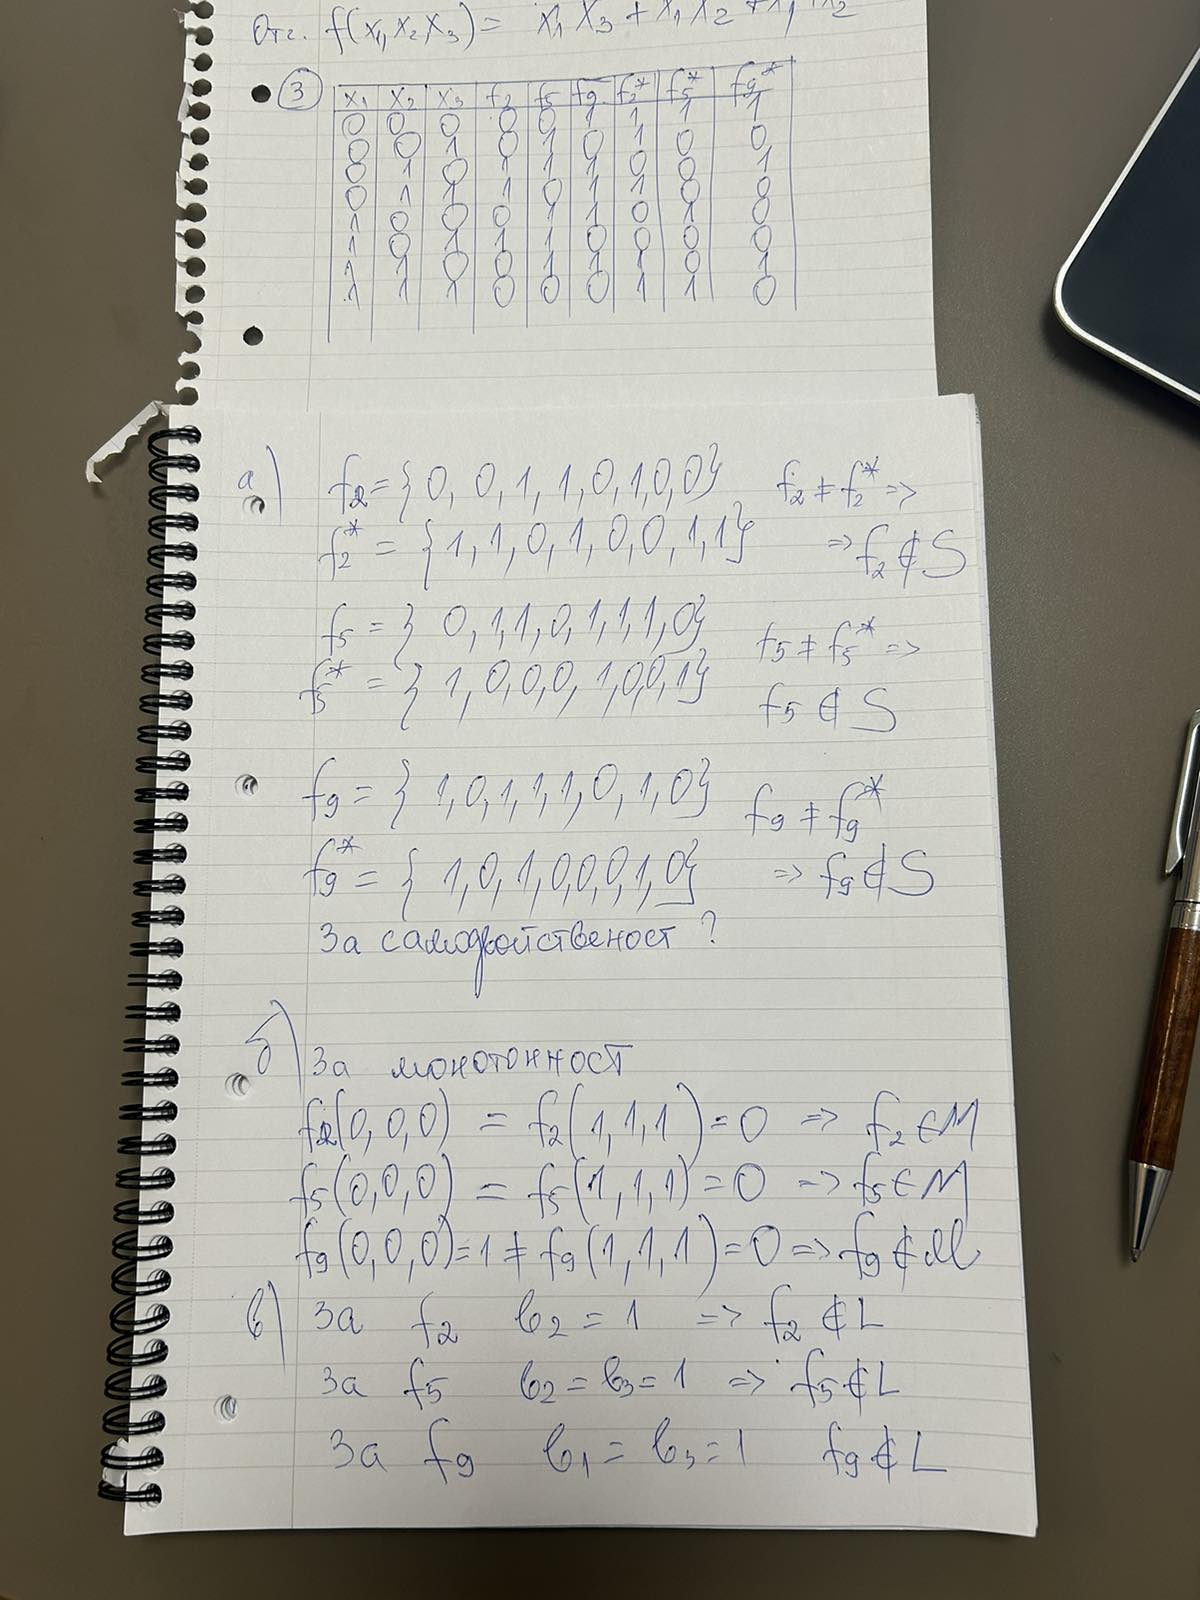 Отг. f(x₁, x₂ x₃) = x₁ x₃ + x₁ x₂ + x₁ + x₂
③
x₁ x₂ x₃ f₂ f₅ f₉ f₂* f₅* f₉*
0 0 0 0 0 1 1 1 1
0 0 1 0 1 0 1 0 0
0 1 0 1 1 1 0 0 1
0 1 1 1 0 1 1 0 0
1 0 0 0 1 1 0 1 0
1 0 1 1 1 0 0 0 0
1 1 0 0 1 1 1 0 1
1 1 1 0 0 0 1 1 0
а) f₂ = {0, 0, 1, 1, 0, 1, 0, 0} f₂ ≠ f₂* =>
f₂* = {1, 1, 0, 1, 0, 0, 1, 1} => f₂ ∉ S
f₅ = {0, 1, 1, 0, 1, 1, 1, 0} f₅ ≠ f₅* =>
f₅* = {1, 0, 0, 0, 1, 0, 0, 1} f₅ ∉ S
f₉ = {1, 0, 1, 1, 1, 0, 1, 0} f₉ ≠ f₉*
f₉* = {1, 0, 1, 0, 0, 0, 1, 0} => f₉ ∉ S
За самодвойственост ?
б) За монотонност
f₂(0, 0, 0) = f₂(1, 1, 1) = 0 => f₂ ∈ M
f₅(0, 0, 0) = f₅(1, 1, 1) = 0 => f₅ ∈ M
f₉(0, 0, 0) = 1 ≠ f₉(1, 1, 1) = 0 => f₉ ∉ M
в) За f₂ b₂ = 1 => f₂ ∉ L
За f₅ b₂ = b₃ = 1 => f₅ ∉ L
За f₉ b₁ = b₃ = 1 f₉ ∉ L